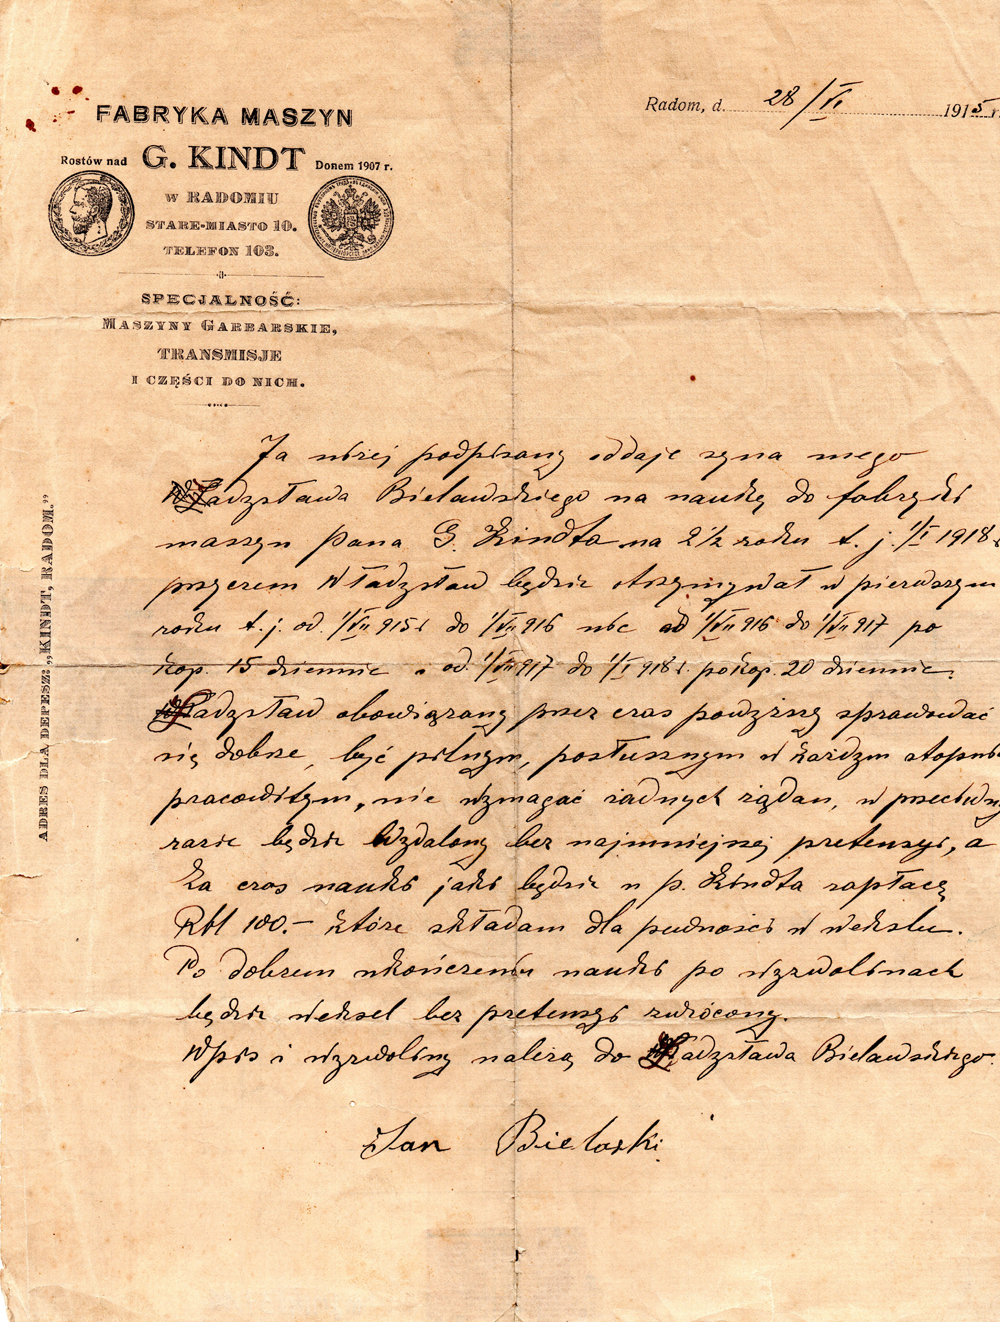 Radom, d. 28/VI 1915 r.
FABRYKA MASZYN
Rostów nad G. KINDT Donem 1907 r.
W RADOMIU
STARE-MIASTO 10.
TELEFON 103.
SPECJALNOŚĆ:
MASZYNY GARBARSKIE,
TRANSMISJE
I CZĘŚCI DO NICH.
ADRES DLA DEPESZ: „KINDT, RADOM.”
Ja niżej podpisany oddaje syna mego
Ładzsława Bielawskiego na naukę do fabryki
maszyn pana G. Kindta na 2 1/2 roku t. j. 1/I 1918 r
przyczem Władzsław będzie otrzymywał w pierwszym
roku t. j. od 1/VII 915 r do 1/VII 916 ad 1/VII 916 do 1/VII 917 po
kop. 15 dziennie i od 1/VII 917 do 1/I 918 r. po kop. 20 dziennie.
Ładzsław obowiązany przez czas powyższy sprawować
się dobrze, być pilnym, posłusznym w każdym stopniu
pracowitym, nie wymagać żadnych żądan, w przeciwnym
razie będzie wydalony bez najmniejszej pretensyi, a
za czas nauki jaki będzie u p. Kindta zapłacę
Rbl 100.— które składam dla pewności w wekslu.
Po dobrem ukończeniu nauki po wyzwolinach
będzie weksel bez pretensyi zwrócony.
Wpis i wyzwoliny należą do Ładzsława Bielawskiego.
Jan Bielaski